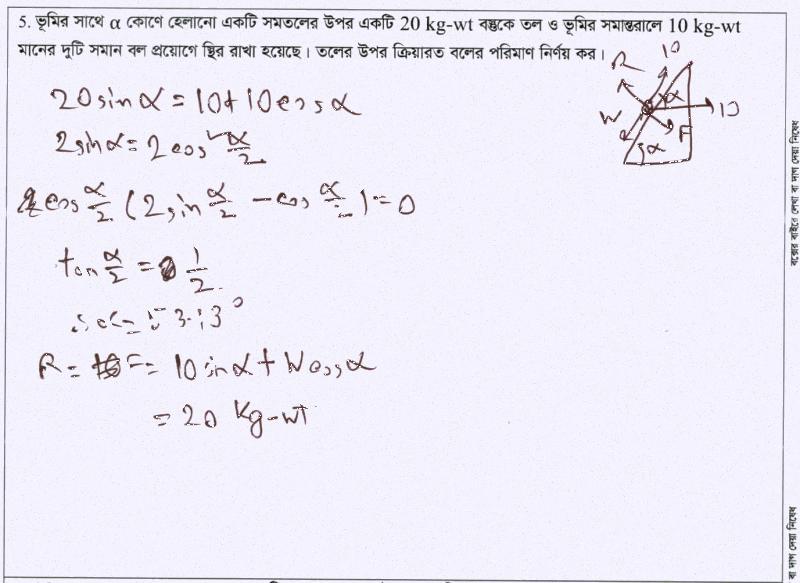 5. ভূমির সাথে α কোণে হেলানো একটি সমতলের উপর একটি 20 kg-wt বস্তুকে তল ও ভূমির সমান্তরালে 10 kg-wt
মানের দুটি সমান বল প্রয়োগে স্থির রাখা হয়েছে। তলের উপর ক্রিয়ারত বলের পরিমাণ নির্ণয় কর।
R
10
α
10
W
F
α
20 sin α = 10 + 10 cos α
2 sin α = 2 cos² α/2
cos α/2 (2 sin α/2 - cos α/2) = 0
tan α/2 = 1/2
∴ α = 53.13°
R = F = 10 sin α + W cos α
= 20 kg-wt
বক্সের বাইরে লেখা বা দাগ দেয়া নিষেধ
বা দাগ দেয়া নিষেধ